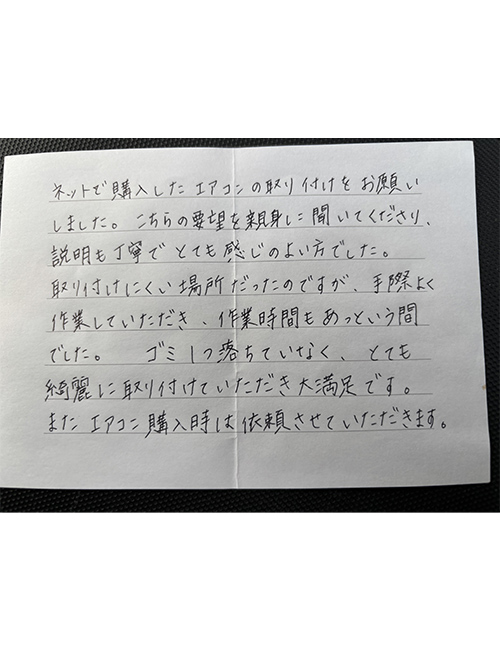 ネットで購入したエアコンの取り付けをお願い
しました。こちらの要望を親身に聞いてくださり、
説明も丁寧でとても感じのよい方でした。
取り付けにくい場所だったのですが、手際よく
作業していただき、作業時間もあっという間
でした。 ゴミ1つ落ちていなく、とても
綺麗に取り付けていただき大満足です。
またエアコン購入時は依頼させていただきます。